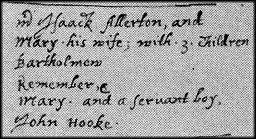 mr Isaack Allerton, and
Mary his wife; with .3. Children
Bartholmew
Remember, &
Mary. and a servant boy,
John Hooke.